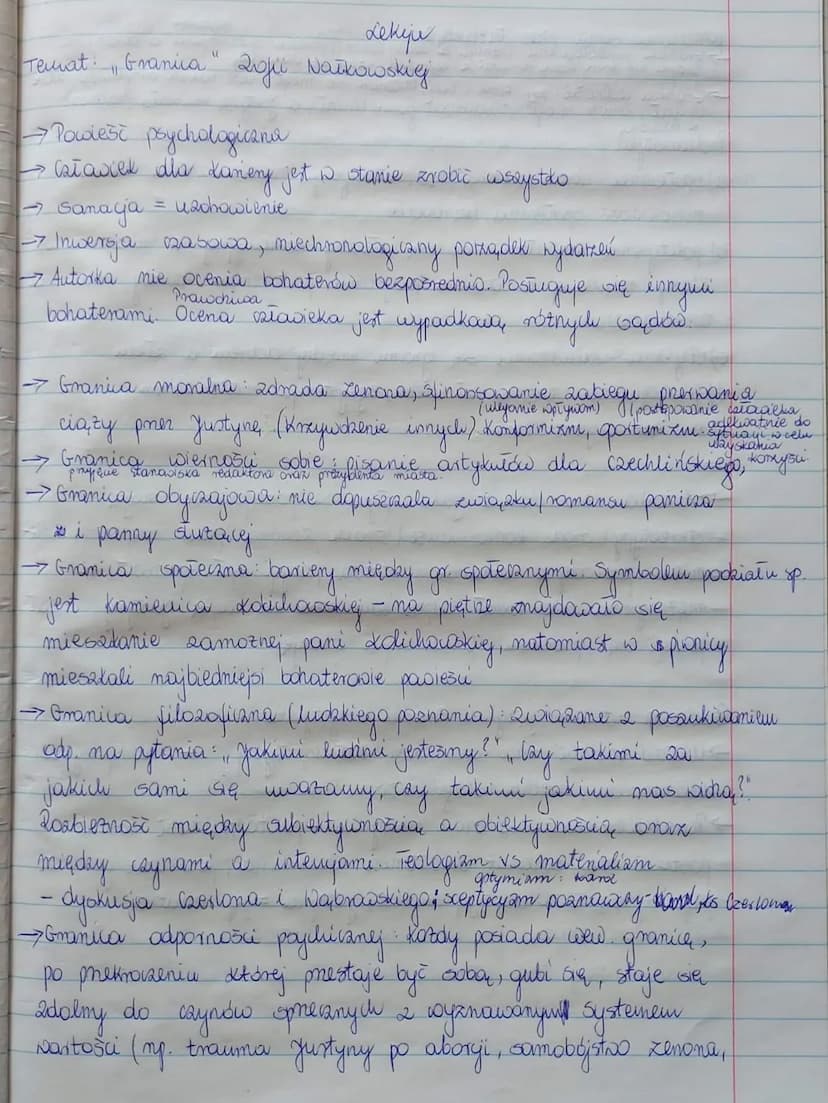 Lekcja
Temat: „Granica" Zofii Nałkowskiej
→ Powieść psychologiczna
→ Człowiek dla kariery jest w stanie zrobić wszystko
→ sanacja = uzdrowienie
→ Inwersja czasowa, niechronologiczny porządek wydarzeń
→ Autorka nie ocenia bohaterów bezpośrednio. Posługuje się innymi
Prawdziwa
bohaterami. Ocena człowieka jest wypadkową różnych sądów.
→ Granica moralna: zdrada Zenona, sfinansowanie zabiegu przerwania
(uleganie wpływom) (postępowanie człowieka
ciąży przez Justynę (krzywdzenie innych) konformizm, oportunizm adekwatnie do
sytuacji w celu
uzyskania
→ Granica wierności sobie: pisanie artykułów dla Czechlińskiego, korzyści
przyjęcie stanowiska redaktora oraz prezydenta miasta.
→ Granica obyczajowa: nie dopuszczała związku/romansu panicza
i panny służącej
→ Granica społeczna: bariery między gr. społecznymi. Symbolem podziału sp.
jest kamienica Kolichowskiej – na piętrze znajdowało się
mieszkanie zamożnej pani Kolichowskiej, natomiast w piwnicy
mieszkali najbiedniejsi bohaterowie powieści
→ Granica filozoficzna (ludzkiego poznania): związane z poszukiwaniem
odp. na pytania: „Jakimi ludźmi jesteśmy?" „Czy takimi za
jakich sami się uważamy, czy takimi jakimi nas widzą?"
Rozbieżność między subiektywnością a obiektywnością oraz
między czynami a intencjami. Teologizm vs materializm
optymizm: Karol
– dyskusja Czerlona i Wąbrowskiego; sceptycyzm poznawczy - ks Czerlon
→ Granica odporności psychicznej: każdy posiada wew. granicę,
po przekroczeniu której przestaje być sobą, gubi się, staje się
zdolny do czynów sprzecznych z wyznawanym systemem
wartości (np. trauma Justyny po aborcji, samobójstwo Zenona,